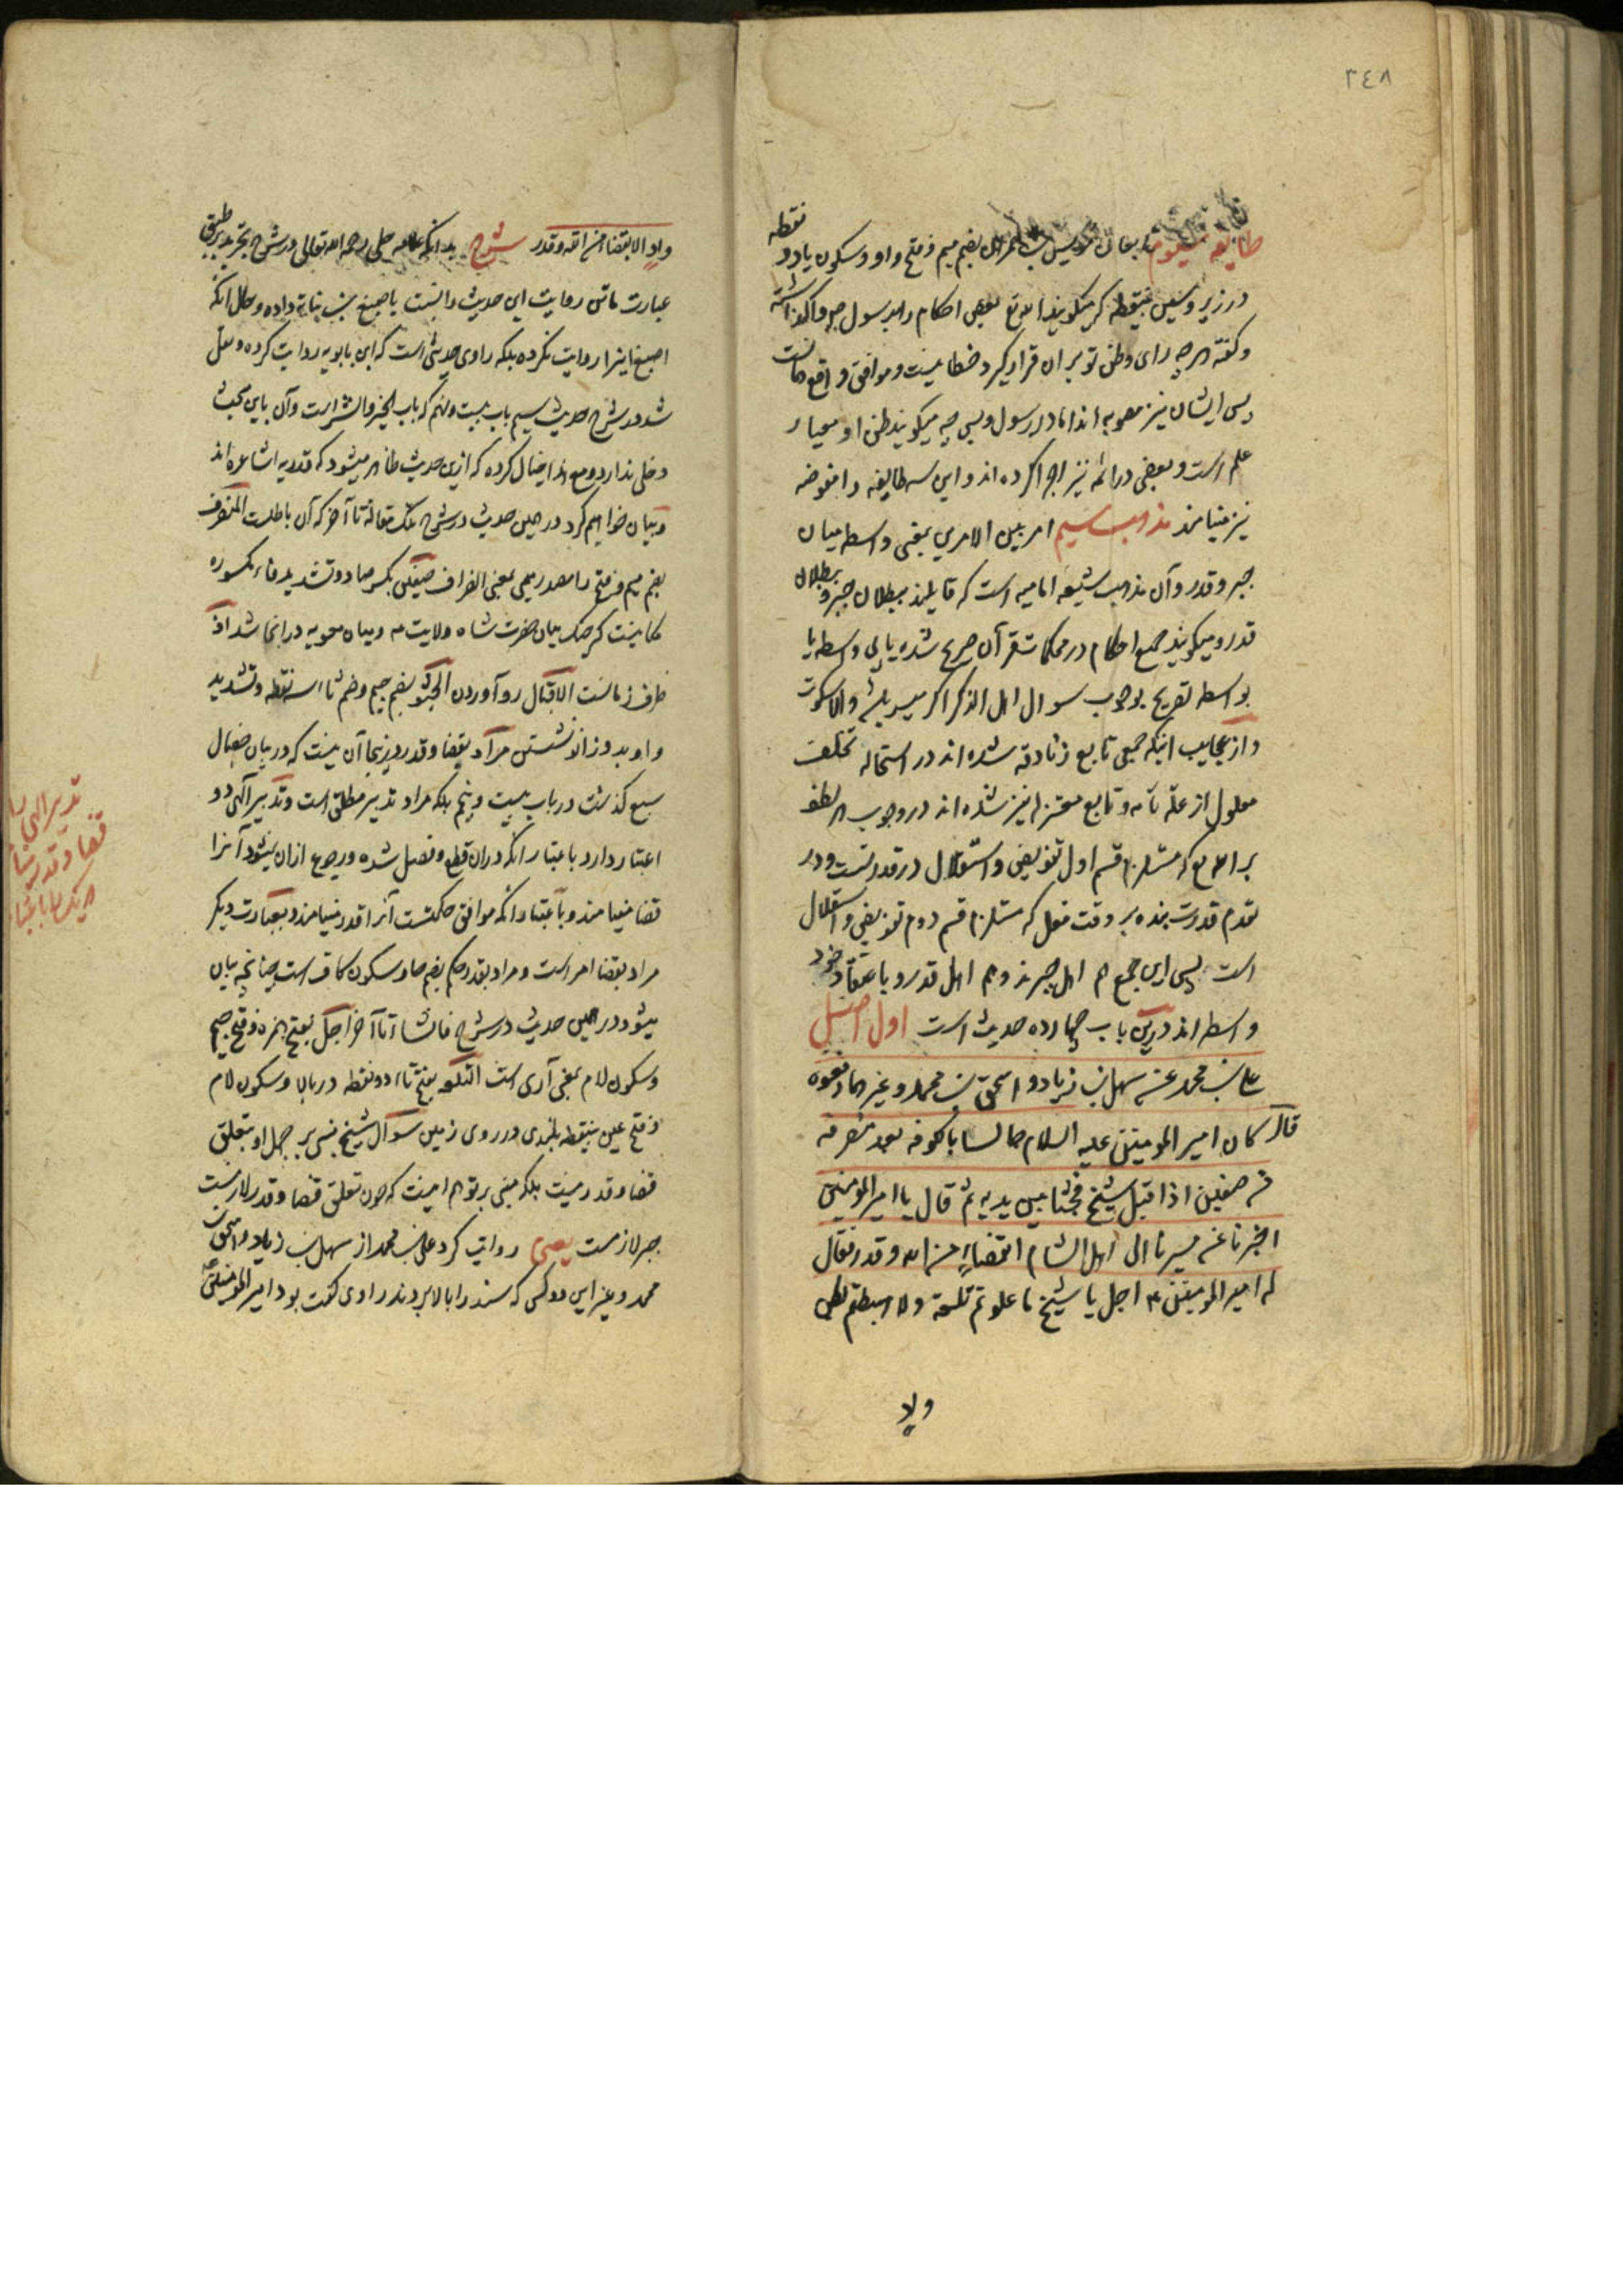 ٢٤٨
طایفه سیوم تابعان مویس بن عمران بضم میم و فتح واو و سکون یاء دو نقطه
در زیر و سین بینقطه که میگویند الله تع بعض احکام را برسول خود واگذاشته
و گفته هرچه رای و ظن تو بر ان قرار گیرد خطا نیست و موافق واقع ماست
پس ایشان نیز مصوبه اند اما در رسول و بس چه میگویند ظن او معیار
علم است و بعضی در ائمه نیز اجرا کرده اند و این سه طایفه را مفوضه
نیز مینامند مذهب سیم امر بین الامرین بمعنی واسطه میان
جبر و قدر و آن مذهب شیعه امامیه است که قایلند ببطلان جبر و بطلان
قدر و میگویند جمیع احکام در محکمات قرآن صریح شده یا بی واسطه یا
بواسطه تصریح بوجوب سوال اهل الذکر اگر میسر باشد و الا سکوت
و از عجایب اینکه جمعی تابع زنادقه شده اند در استحاله تخلف
معلول از علّه تامه و تابع معتزله نیز شده اند در وجوب هر لطف
بر الله تع که مستلزم قسم اول تفویض و استقلال در قدرتست و در
تقدم قدرت بنده بر وقت فعل که مستلزم قسم دوم تفویض و استقلال
است پس این جمع هم اهل جبرند و هم اهل قدر و باعتقاد خود
واسطه اند درین باب چهارده حدیث است اول اصل
علی بن محمد عن سهل بن زیاد و اسحق بن محمد و غیرهما رفعوه
قال کان امیر المومنین علیه السلام جالسا بالکوفه بعد منصرفه
من صفین اذا قبل شیخ فجثا بین یدیه ثم قال یا امیر المومنین
اخبرنا عن مسیرنا الی اهل الشام ابقضاء من الله و قدر فقال
له امیر المومنین ع اجل یا شیخ ما علوتم تلعة ولا هبطتم بطن
ولا
واد الا بقضاء من الله و قدر شرح بدانکه علامه حلی رحمه الله تعالی در شرح تجرید بر طبق
عبارت ماتن روایت این حدیث را نسبت باصبغ بن نباته داده و حال آنکه
اصبغ اینرا روایت نکرده بلکه راوی حدیثی است که ابن بابویه روایت کرده و نقل
شد در شرح حدیث سیم باب بیست و نهم که باب الخیر و الشر است و آن باین مبحث
دخلی ندارد و مع هذا خیال کرده که ازین حدیث ظاهر میشود که قدریه اشاعره اند
و بیان خواهیم کرد در همین حدیث در شرح تلک مقالة تا آخر که آن باطلست المنصرف
بضم میم و فتح را مصدر میمی بمعنی انصراف صفین بکسر صاد و تشدید فاء مکسوره
مکانیست که جنگ میان حضرت شاه ولایت ع و میان معویه در انجا شد اذ
ظرف زمانست الاقبال رو آوردن الجثو بضم جیم و ضم ثاء سه نقطه و تشدید
واو بدو زانو نشستن مراد بقضا و قدر در اینجا آن نیست که در بیان خصال
سبع گذشت در باب بیست و پنجم بلکه مراد تدبیر مطلق است و تدبیر آلهی دو
اعتبار دارد باعتبار انکه در ان قطع و فصل شده و رجوع ازان نمیشود آنرا
قضا مینامند و باعتبار انکه موافق حکمتست آنرا قدر مینامند و بعبارت دیگر
مراد بقضا امر است و مراد بقدر حکم بضم حا و سکون کاف است چنانچه بیان
میشود در همین حدیث در شرح فانشا تا آخر اجل بفتح همزه و فتح جیم
و سکون لام بمعنی آری است التلعه بفتح تاء دو نقطه در بالا و سکون لام
و فتح عین بینقطه بلندی در روی زمین سوال شیخ مبنی بر جهل او بتعلق
قضا و قدر نیست بلکه مبنی بر توهم اینست که چون تعلق قضا و قدر لازمست
جبر لازمست یعنی روایت کرد علی بن محمد از سهل بن زیاد و اسحق بن
محمد و غیر این دو کس که سند را بالا بردند راوی گفت بود امیر المومنین ع
تدبیر الهی با
قضا و قدر